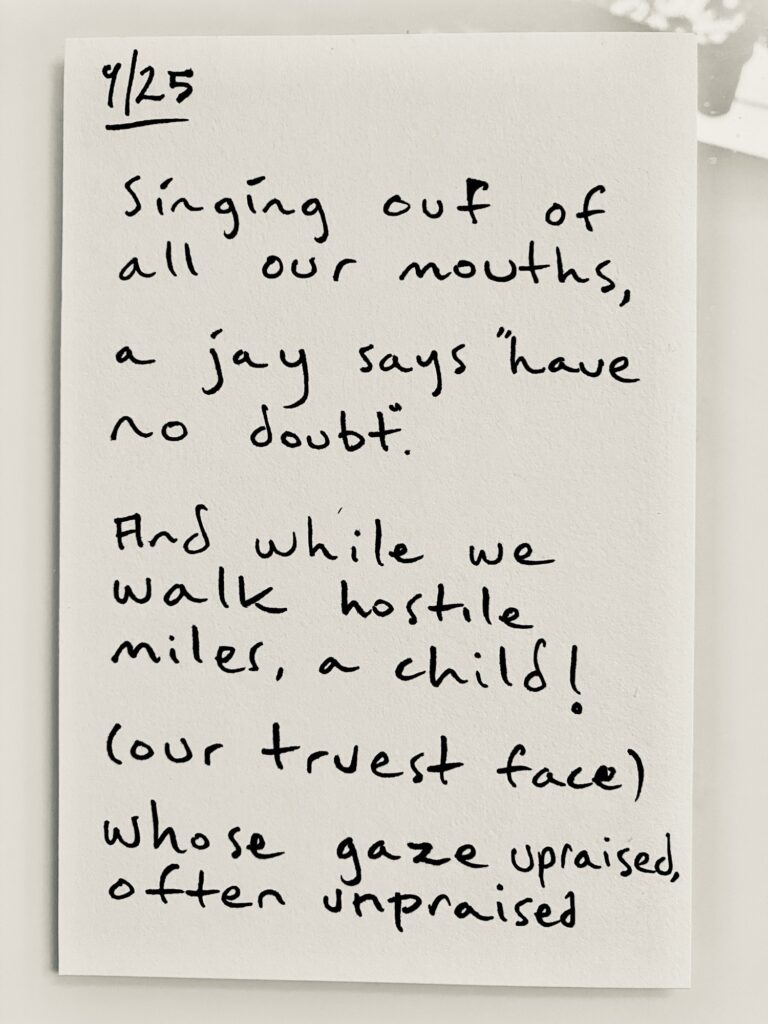 9/25
Singing out of
all our mouths,
a jay says "have
no doubt".
And while we
walk hostile
miles, a child!
(our truest face)
whose gaze upraised,
often unpraised